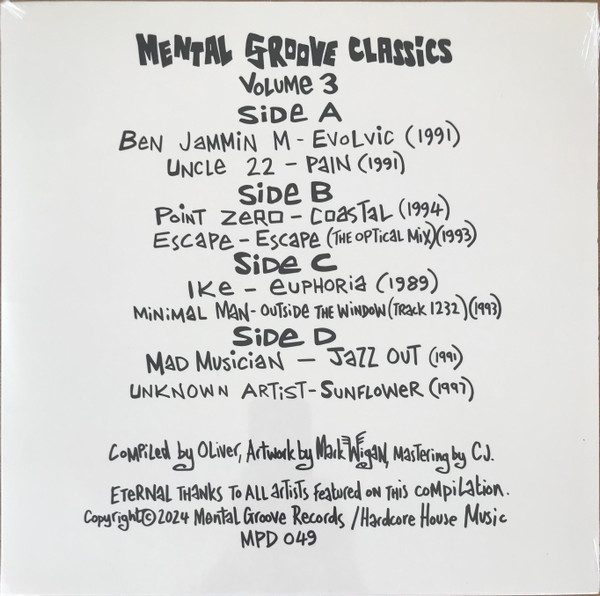 MENTAL GROOVE CLASSICS
VOLUME 3
SIDE A
BEN JAMMIN M - EVOLVIC (1991)
UNCLE 22 - PAIN (1991)
SIDE B
POINT ZERO - COASTAL (1994)
ESCAPE - ESCAPE (THE OPTICAL MIX)(1993)
SIDE C
IKE - EUPHORIA (1989)
MINIMAL MAN - OUTSIDE THE WINDOW (TRACK 1232)(1993)
SIDE D
MAD MUSICIAN - JAZZ OUT (1991)
UNKNOWN ARTIST - SUNFLOWER (1997)
Compiled by Oliver, Artwork by Mark Wigan, Mastering by CJ.
ETERNAL THANKS TO ALL ARTISTS FEATURED ON THIS COMPILATION.
Copyright © 2024 Mental Groove Records / Hardcore House Music
MPD 049